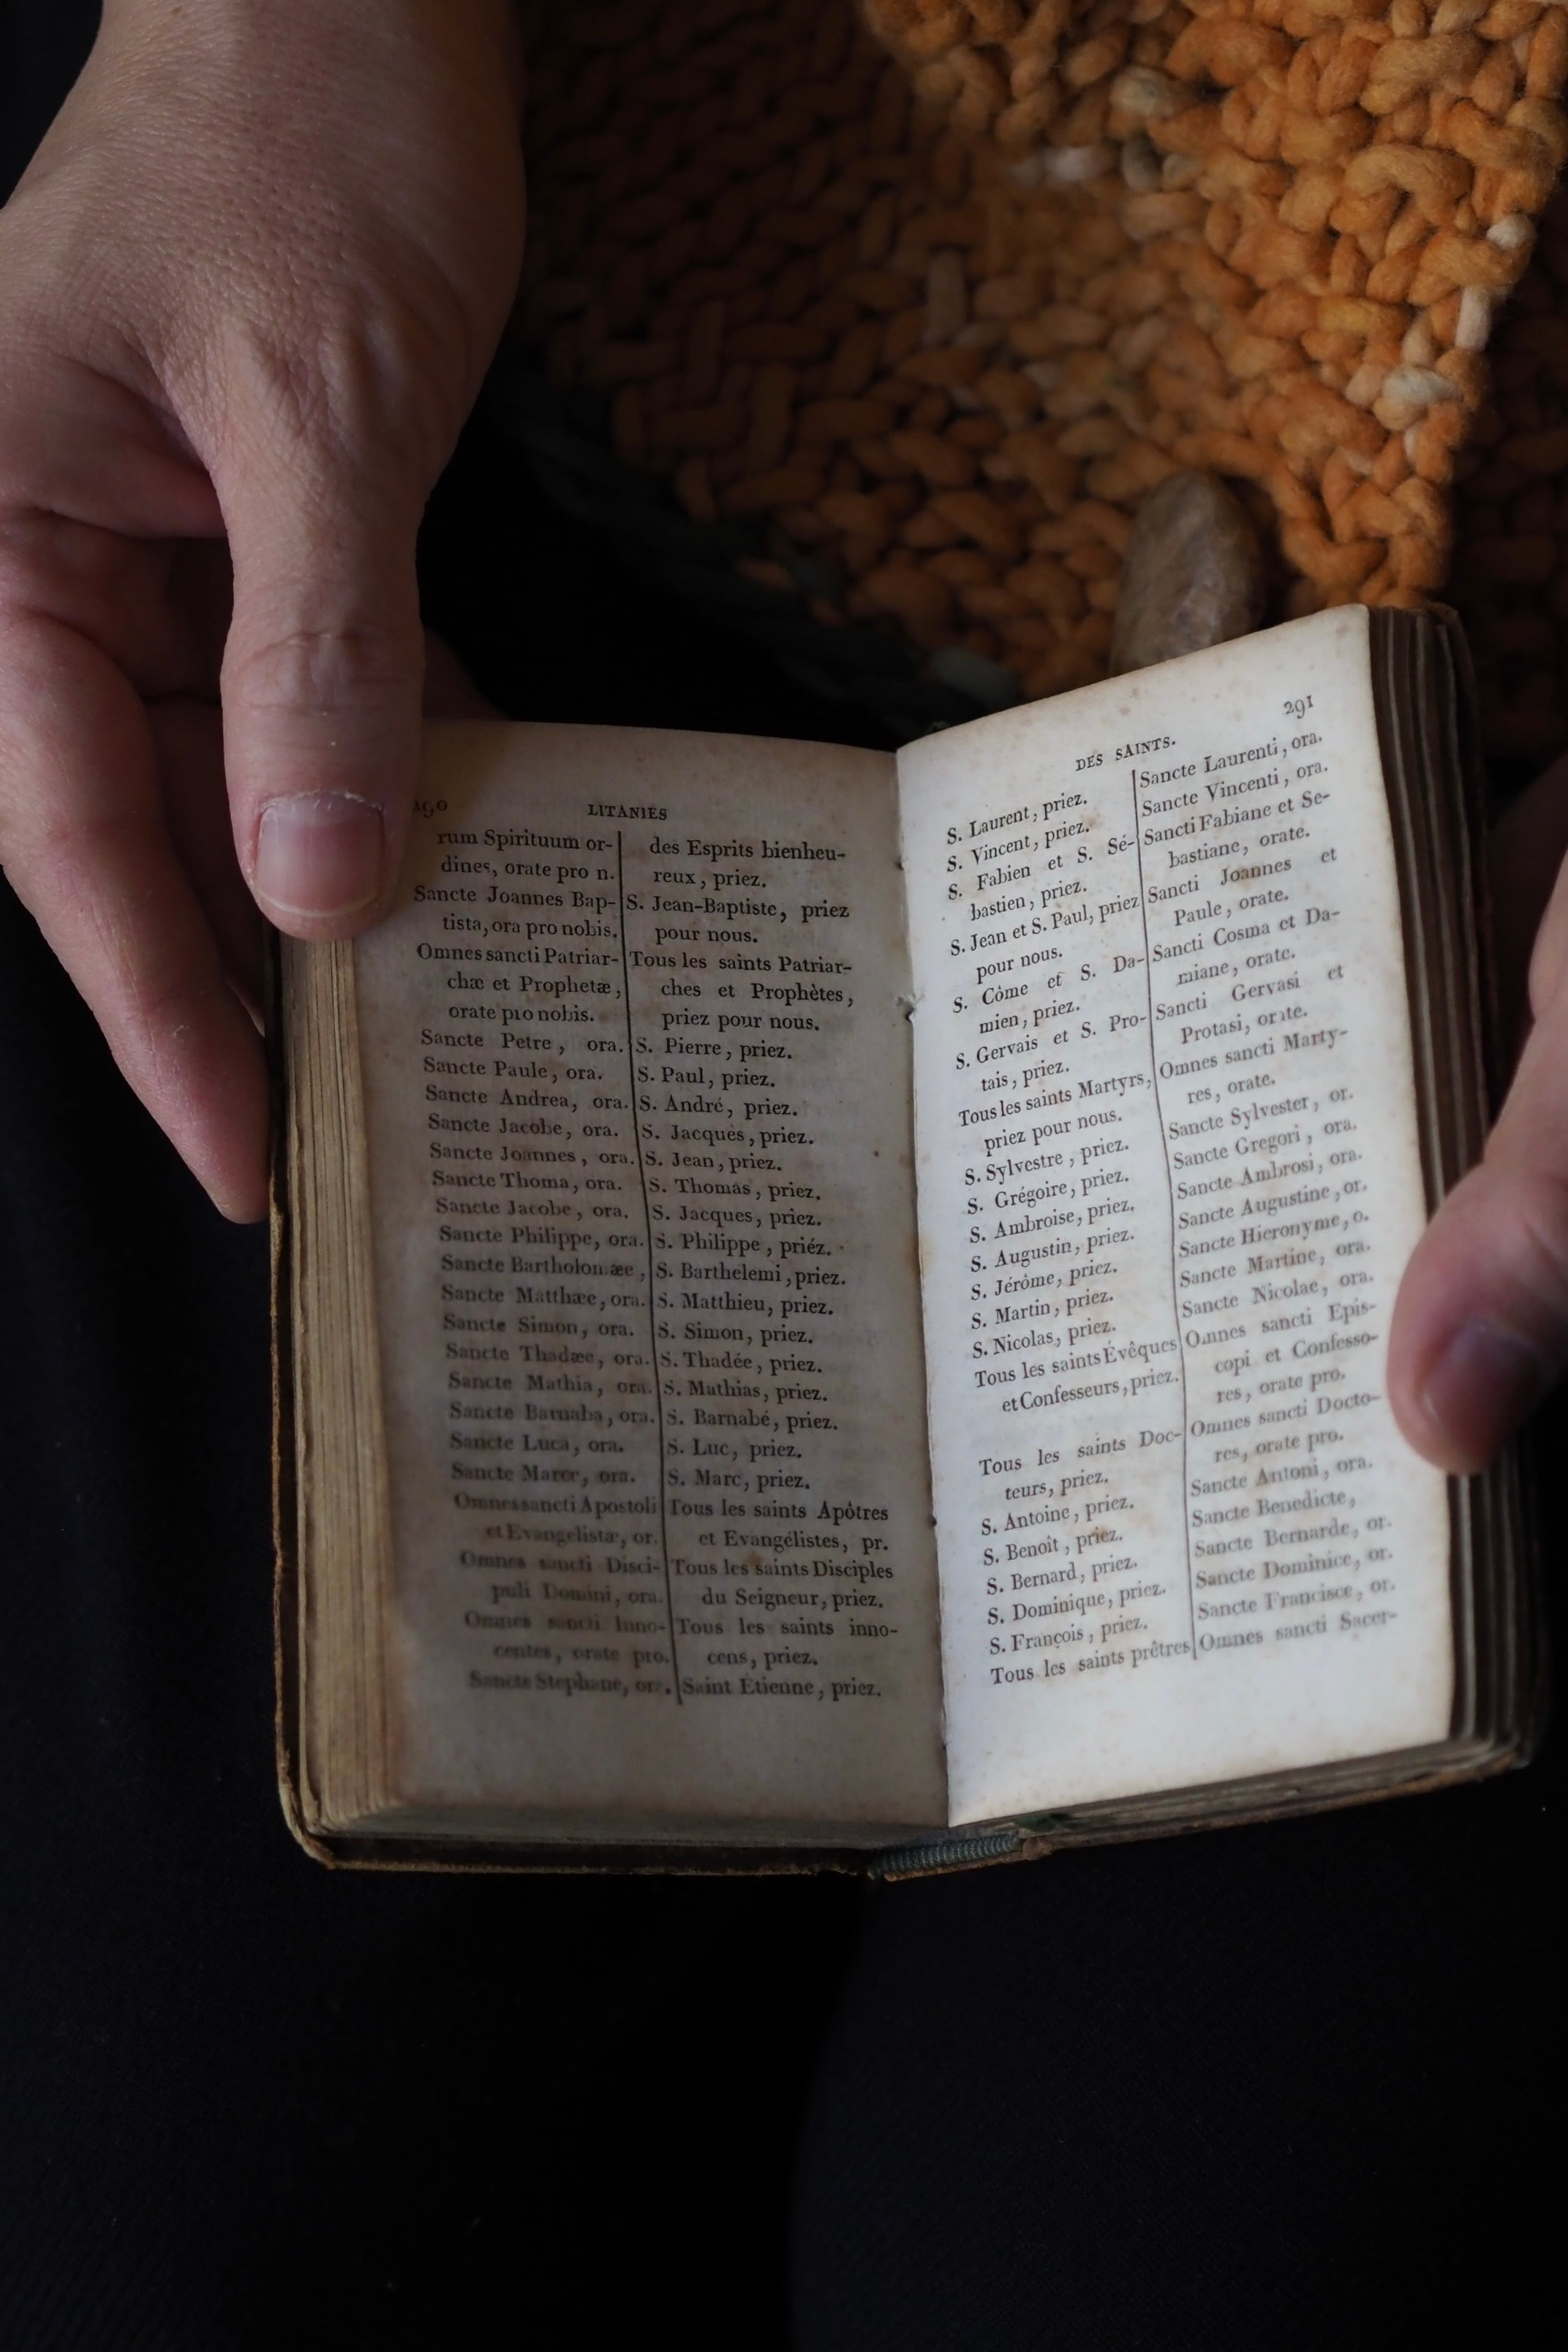 290
LITANIES
rum Spirituum or-
dines, orate pro n.
Sancte Joannes Bap-
tista, ora pro nobis.
Omnes sancti Patriar-
chæ et Prophetæ,
orate pro nobis.
Sancte Petre, ora.
Sancte Paule, ora.
Sancte Andrea, ora.
Sancte Jacobe, ora.
Sancte Joannes, ora.
Sancte Thoma, ora.
Sancte Jacobe, ora.
Sancte Philippe, ora.
Sancte Bartholomæe,
Sancte Matthæe, ora.
Sancte Simon, ora.
Sancte Thadæe, ora.
Sancte Mathia, ora.
Sancte Barnaba, ora.
Sancte Luca, ora.
Sancte Marce, ora.
Omnes sancti Apostoli
et Evangelistæ, or.
Omnes sancti Disci-
puli Domini, ora.
Omnes sancti Inno-
centes, orate pro.
Sancte Stephane, ora.
des Esprits bienheu-
reux, priez.
S. Jean-Baptiste, priez
pour nous.
Tous les saints Patriar-
ches et Prophètes,
priez pour nous.
S. Pierre, priez.
S. Paul, priez.
S. André, priez.
S. Jacques, priez.
S. Jean, priez.
S. Thomas, priez.
S. Jacques, priez.
S. Philippe, priéz.
S. Barthelemi, priez.
S. Matthieu, priez.
S. Simon, priez.
S. Thadée, priez.
S. Mathias, priez.
S. Barnabé, priez.
S. Luc, priez.
S. Marc, priez.
Tous les saints Apôtres
et Evangélistes, pr.
Tous les saints Disciples
du Seigneur, priez.
Tous les saints inno-
cens, priez.
Saint Étienne, priez.
DES SAINTS.
291
S. Laurent, priez.
S. Vincent, priez.
S. Fabien et S. Sé-
bastien, priez.
S. Jean et S. Paul, priez
pour nous.
S. Côme et S. Da-
mien, priez.
S. Gervais et S. Pro-
tais, priez.
Tous les saints Martyrs,
priez pour nous.
S. Sylvestre, priez.
S. Grégoire, priez.
S. Ambroise, priez.
S. Augustin, priez.
S. Jérôme, priez.
S. Martin, priez.
S. Nicolas, priez.
Tous les saints Évêques
et Confesseurs, priez.
Tous les saints Doc-
teurs, priez.
S. Antoine, priez.
S. Benoît, priez.
S. Bernard, priez.
S. Dominique, priez.
S. François, priez.
Tous les saints prêtres
Sancte Laurenti, ora.
Sancte Vincenti, ora.
Sancti Fabiane et Se-
bastiane, orate.
Sancti Joannes et
Paule, orate.
Sancti Cosma et Da-
miane, orate.
Sancti Gervasi et
Protasi, orate.
Omnes sancti Marty-
res, orate.
Sancte Sylvester, or.
Sancte Gregori, ora.
Sancte Ambrosi, ora.
Sancte Augustine, or.
Sancte Hieronyme, o.
Sancte Martine, ora.
Sancte Nicolae, ora.
Omnes sancti Epis-
copi et Confesso-
res, orate pro.
Omnes sancti Docto-
res, orate pro.
Sancte Antoni, ora.
Sancte Benedicte,
Sancte Bernarde, or.
Sancte Dominice, or.
Sancte Francisce, or.
Omnes sancti Sacer-